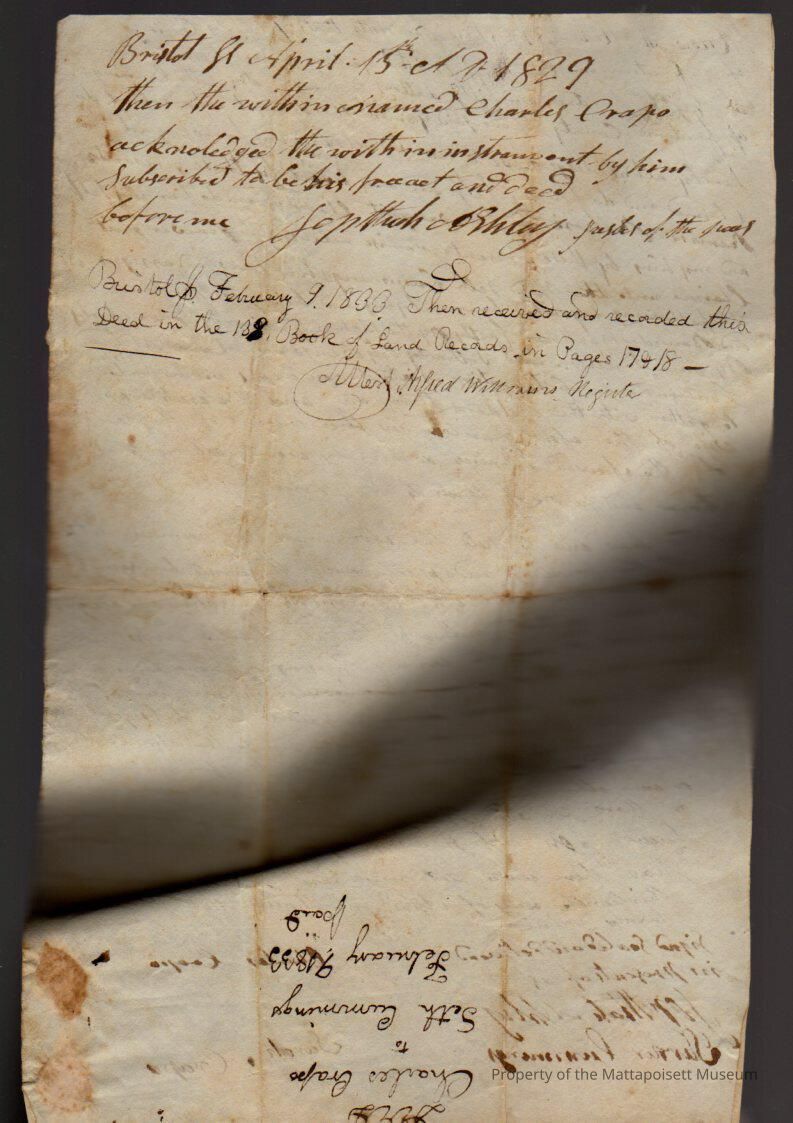 Bristol SS April 15th A D 1829
then the within named Charles Crapo
acknoledged the with in instrument by him
subscribed to be his free act and deed
before me Jepthah Ashley justes of the peas
Bristol Ss. February 9. 1833 Then received and recorded this
Deed in the 138, Book of Land Records in Pages 17 & 18 —
Attest Alfred Williams Register
Charles Crapo
to
Seth Cummings
February 9, 1833
paid
Property of the Mattapoisett Museum